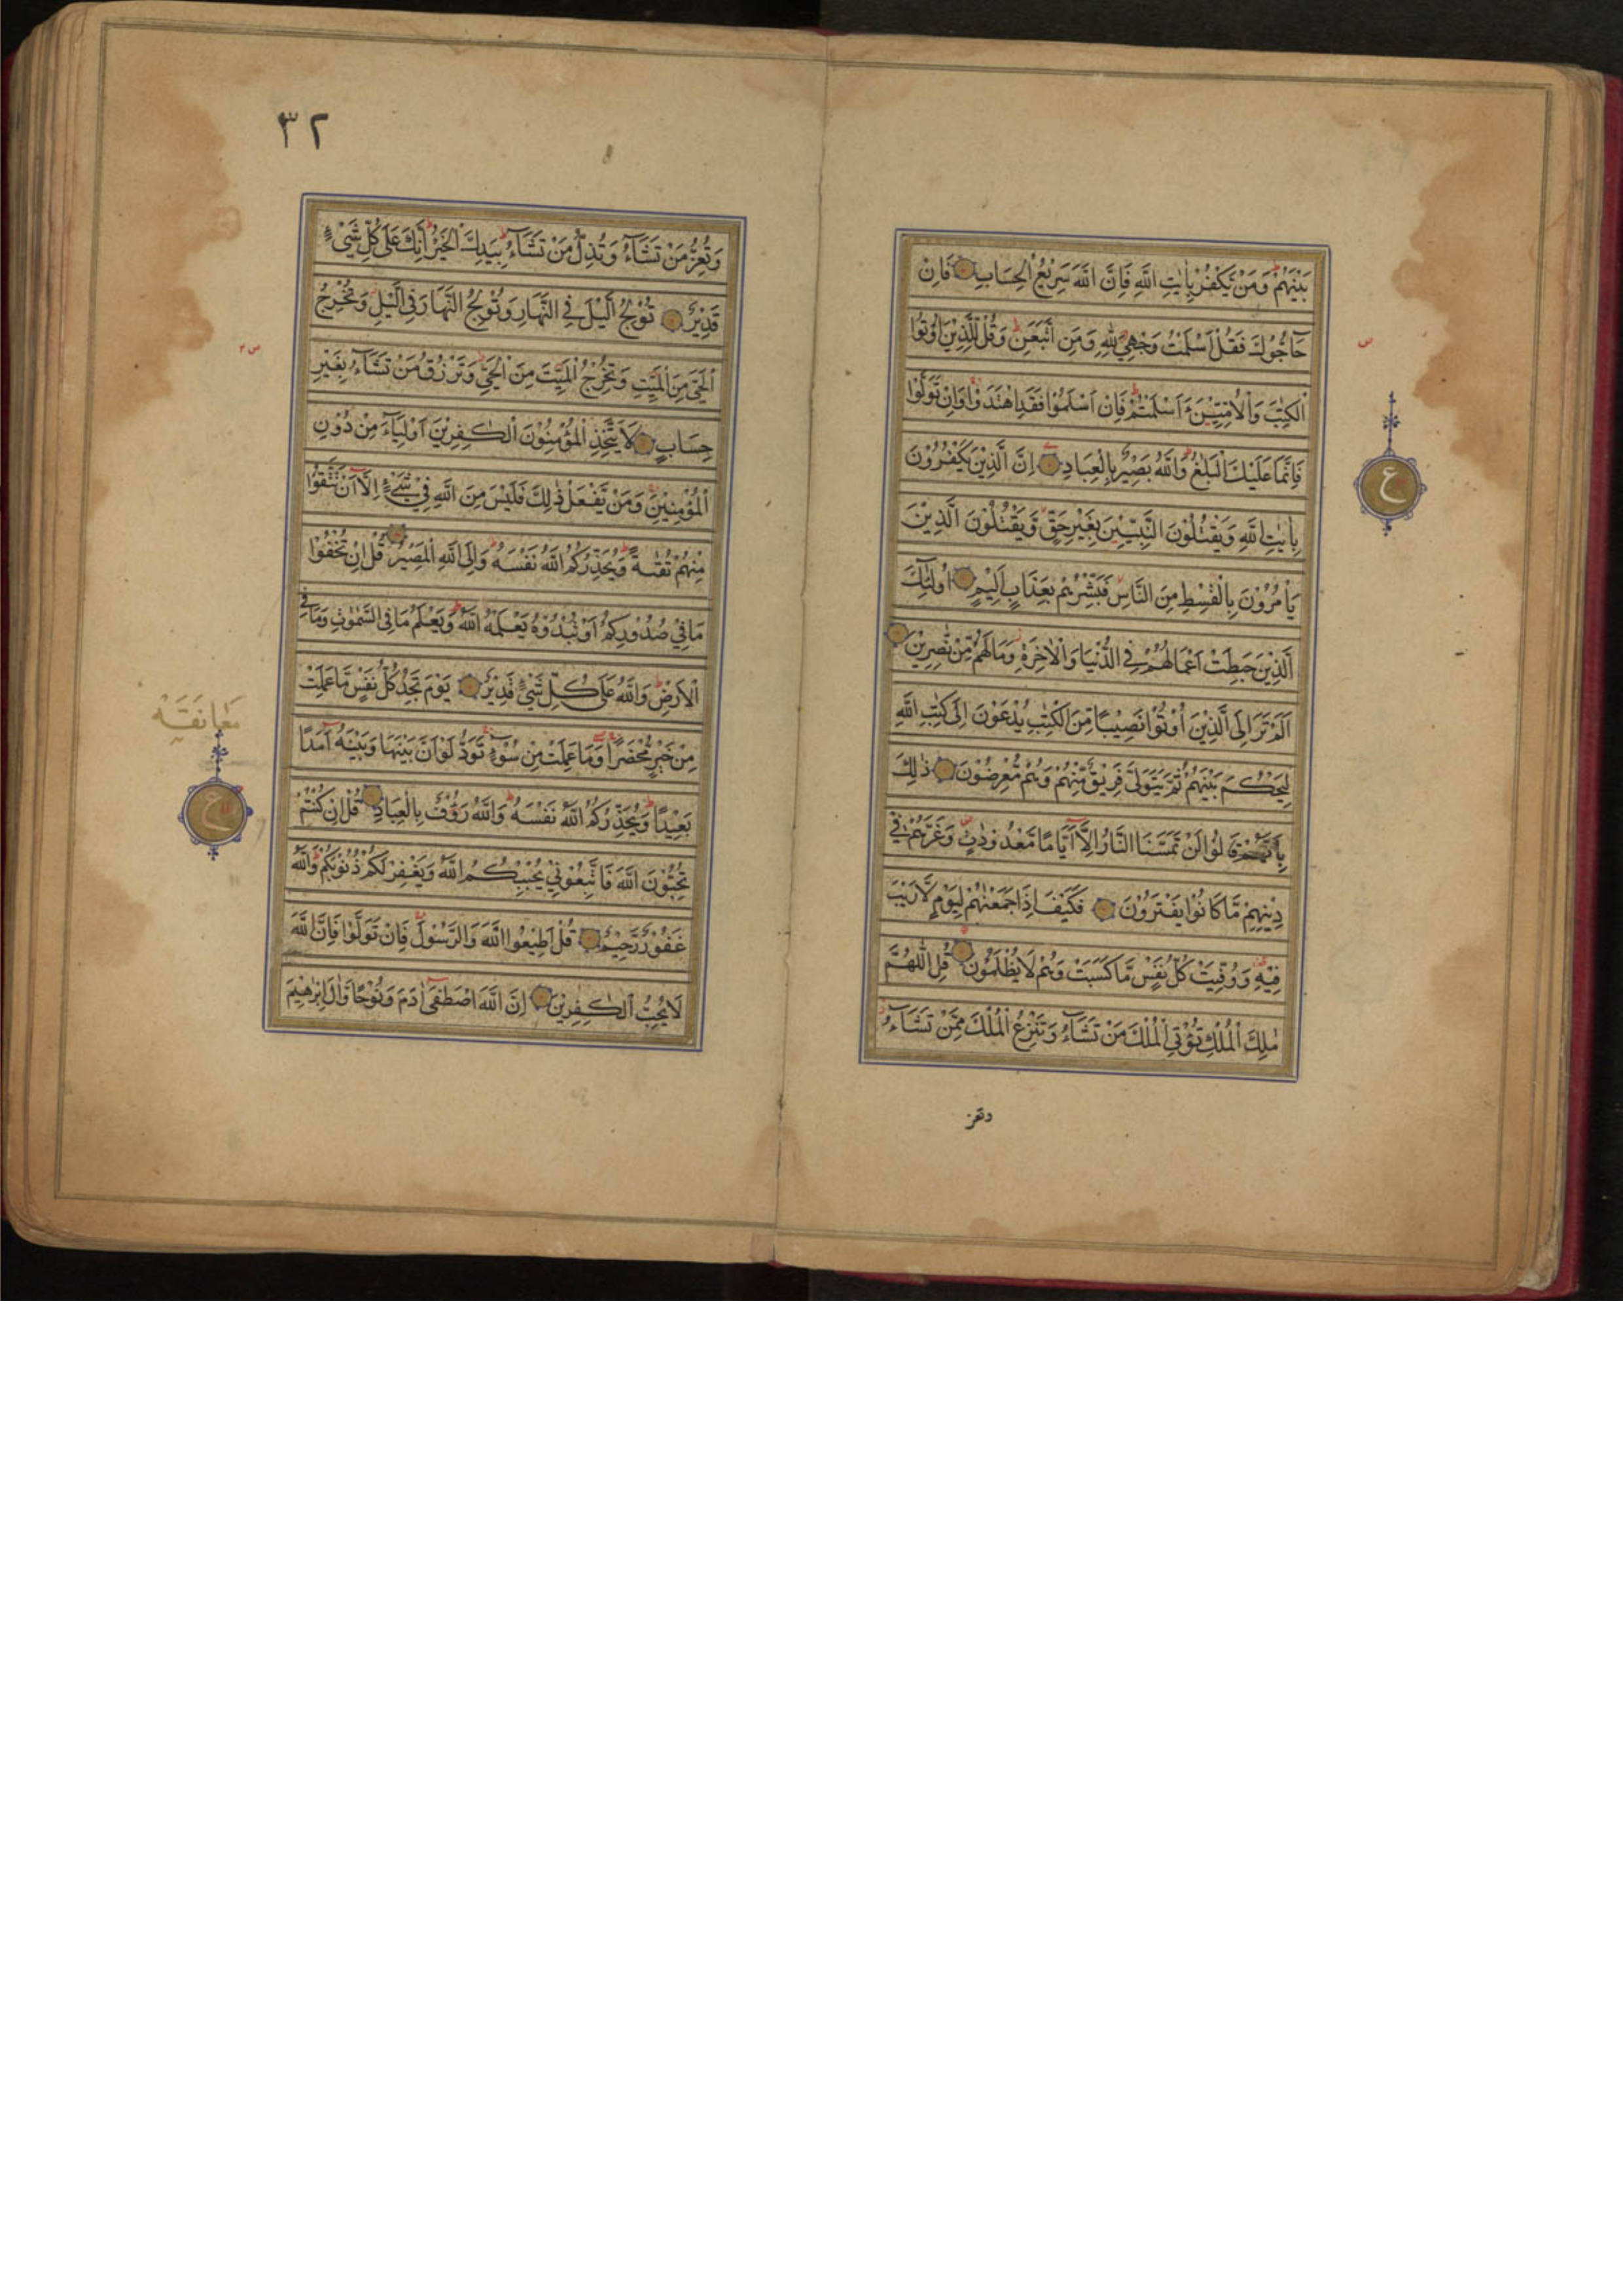 بَيْنَهُمْ وَمَنْ يَّكْفُرْ بِاٰيٰتِ اللّٰهِ فَاِنَّ اللّٰهَ سَرِيْعُ الْحِسَابِ فَاِنْ
حَاجُّوْكَ فَقُلْ اَسْلَمْتُ وَجْهِيَ لِلّٰهِ وَمَنِ اتَّبَعَنِ وَقُلْ لِّلَّذِيْنَ اُوْتُوا
الْكِتٰبَ وَالْاُمِّيّٖنَ ءَاَسْلَمْتُمْ فَاِنْ اَسْلَمُوْا فَقَدِ اهْتَدَوْا وَاِنْ تَوَلَّوْا
فَاِنَّمَا عَلَيْكَ الْبَلٰغُ وَاللّٰهُ بَصِيْرٌ بِالْعِبَادِ اِنَّ الَّذِيْنَ يَكْفُرُوْنَ
بِاٰيٰتِ اللّٰهِ وَيَقْتُلُوْنَ النَّبِيّٖنَ بِغَيْرِ حَقٍّ وَّيَقْتُلُوْنَ الَّذِيْنَ
يَاْمُرُوْنَ بِالْقِسْطِ مِنَ النَّاسِ فَبَشِّرْهُمْ بِعَذَابٍ اَلِيْمٍ اُولٰٓئِكَ
الَّذِيْنَ حَبِطَتْ اَعْمَالُهُمْ فِي الدُّنْيَا وَالْاٰخِرَةِ وَمَا لَهُمْ مِّنْ نّٰصِرِيْنَ
اَلَمْ تَرَ اِلَى الَّذِيْنَ اُوْتُوْا نَصِيْبًا مِّنَ الْكِتٰبِ يُدْعَوْنَ اِلٰى كِتٰبِ اللّٰهِ
لِيَحْكُمَ بَيْنَهُمْ ثُمَّ يَتَوَلّٰى فَرِيْقٌ مِّنْهُمْ وَهُمْ مُّعْرِضُوْنَ ذٰلِكَ
بِاَنَّهُمْ قَالُوْا لَنْ تَمَسَّنَا النَّارُ اِلَّآ اَيَّامًا مَّعْدُوْدٰتٍ وَّغَرَّهُمْ فِيْ
دِيْنِهِمْ مَّا كَانُوْا يَفْتَرُوْنَ فَكَيْفَ اِذَا جَمَعْنٰهُمْ لِيَوْمٍ لَّا رَيْبَ
فِيْهِ وَوُفِّيَتْ كُلُّ نَفْسٍ مَّا كَسَبَتْ وَهُمْ لَا يُظْلَمُوْنَ قُلِ اللّٰهُمَّ
مٰلِكَ الْمُلْكِ تُؤْتِي الْمُلْكَ مَنْ تَشَآءُ وَتَنْزِعُ الْمُلْكَ مِمَّنْ تَشَآءُ
وتعز
س
ع
٣٢
وَتُعِزُّ مَنْ تَشَآءُ وَتُذِلُّ مَنْ تَشَآءُ بِيَدِكَ الْخَيْرُ اِنَّكَ عَلٰى كُلِّ شَيْءٍ
قَدِيْرٌ تُوْلِجُ الَّيْلَ فِي النَّهَارِ وَتُوْلِجُ النَّهَارَ فِي الَّيْلِ وَتُخْرِجُ
الْحَيَّ مِنَ الْمَيِّتِ وَتُخْرِجُ الْمَيِّتَ مِنَ الْحَيِّ وَتَرْزُقُ مَنْ تَشَآءُ بِغَيْرِ
حِسَابٍ لَا يَتَّخِذِ الْمُؤْمِنُوْنَ الْكٰفِرِيْنَ اَوْلِيَآءَ مِنْ دُوْنِ
الْمُؤْمِنِيْنَ وَمَنْ يَّفْعَلْ ذٰلِكَ فَلَيْسَ مِنَ اللّٰهِ فِيْ شَيْءٍ اِلَّآ اَنْ تَتَّقُوْا
مِنْهُمْ تُقٰىةً وَيُحَذِّرُكُمُ اللّٰهُ نَفْسَهٗ وَاِلَى اللّٰهِ الْمَصِيْرُ قُلْ اِنْ تُخْفُوْا
مَا فِيْ صُدُوْرِكُمْ اَوْ تُبْدُوْهُ يَعْلَمْهُ اللّٰهُ وَيَعْلَمُ مَا فِي السَّمٰوٰتِ وَمَا فِي
الْاَرْضِ وَاللّٰهُ عَلٰى كُلِّ شَيْءٍ قَدِيْرٌ يَوْمَ تَجِدُ كُلُّ نَفْسٍ مَّا عَمِلَتْ
مِنْ خَيْرٍ مُّحْضَرًا وَّمَا عَمِلَتْ مِنْ سُوْٓءٍ تَوَدُّ لَوْ اَنَّ بَيْنَهَا وَبَيْنَهٗٓ اَمَدًا
بَعِيْدًا وَيُحَذِّرُكُمُ اللّٰهُ نَفْسَهٗ وَاللّٰهُ رَءُوْفٌ بِالْعِبَادِ قُلْ اِنْ كُنْتُمْ
تُحِبُّوْنَ اللّٰهَ فَاتَّبِعُوْنِيْ يُحْبِبْكُمُ اللّٰهُ وَيَغْفِرْ لَكُمْ ذُنُوْبَكُمْ وَاللّٰهُ
غَفُوْرٌ رَّحِيْمٌ قُلْ اَطِيْعُوا اللّٰهَ وَالرَّسُوْلَ فَاِنْ تَوَلَّوْا فَاِنَّ اللّٰهَ
لَا يُحِبُّ الْكٰفِرِيْنَ اِنَّ اللّٰهَ اصْطَفٰٓى اٰدَمَ وَنُوْحًا وَّاٰلَ اِبْرٰهِيْمَ
مَعَانَقَه
ع